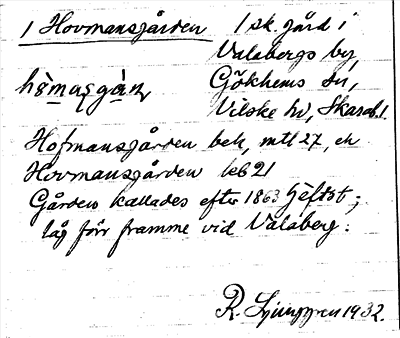 1 Hovmansgården 1 sk. gård i
Valabergs by,
Gökhems sn,
Vilske hd, Skarab.l.
Hofmansgården beb, mtl 27, ch
Hovmansgården leb 21
Gården kallades efter 1863
låg förr framme vid Valaberg.
R. Ljunggren 1932.